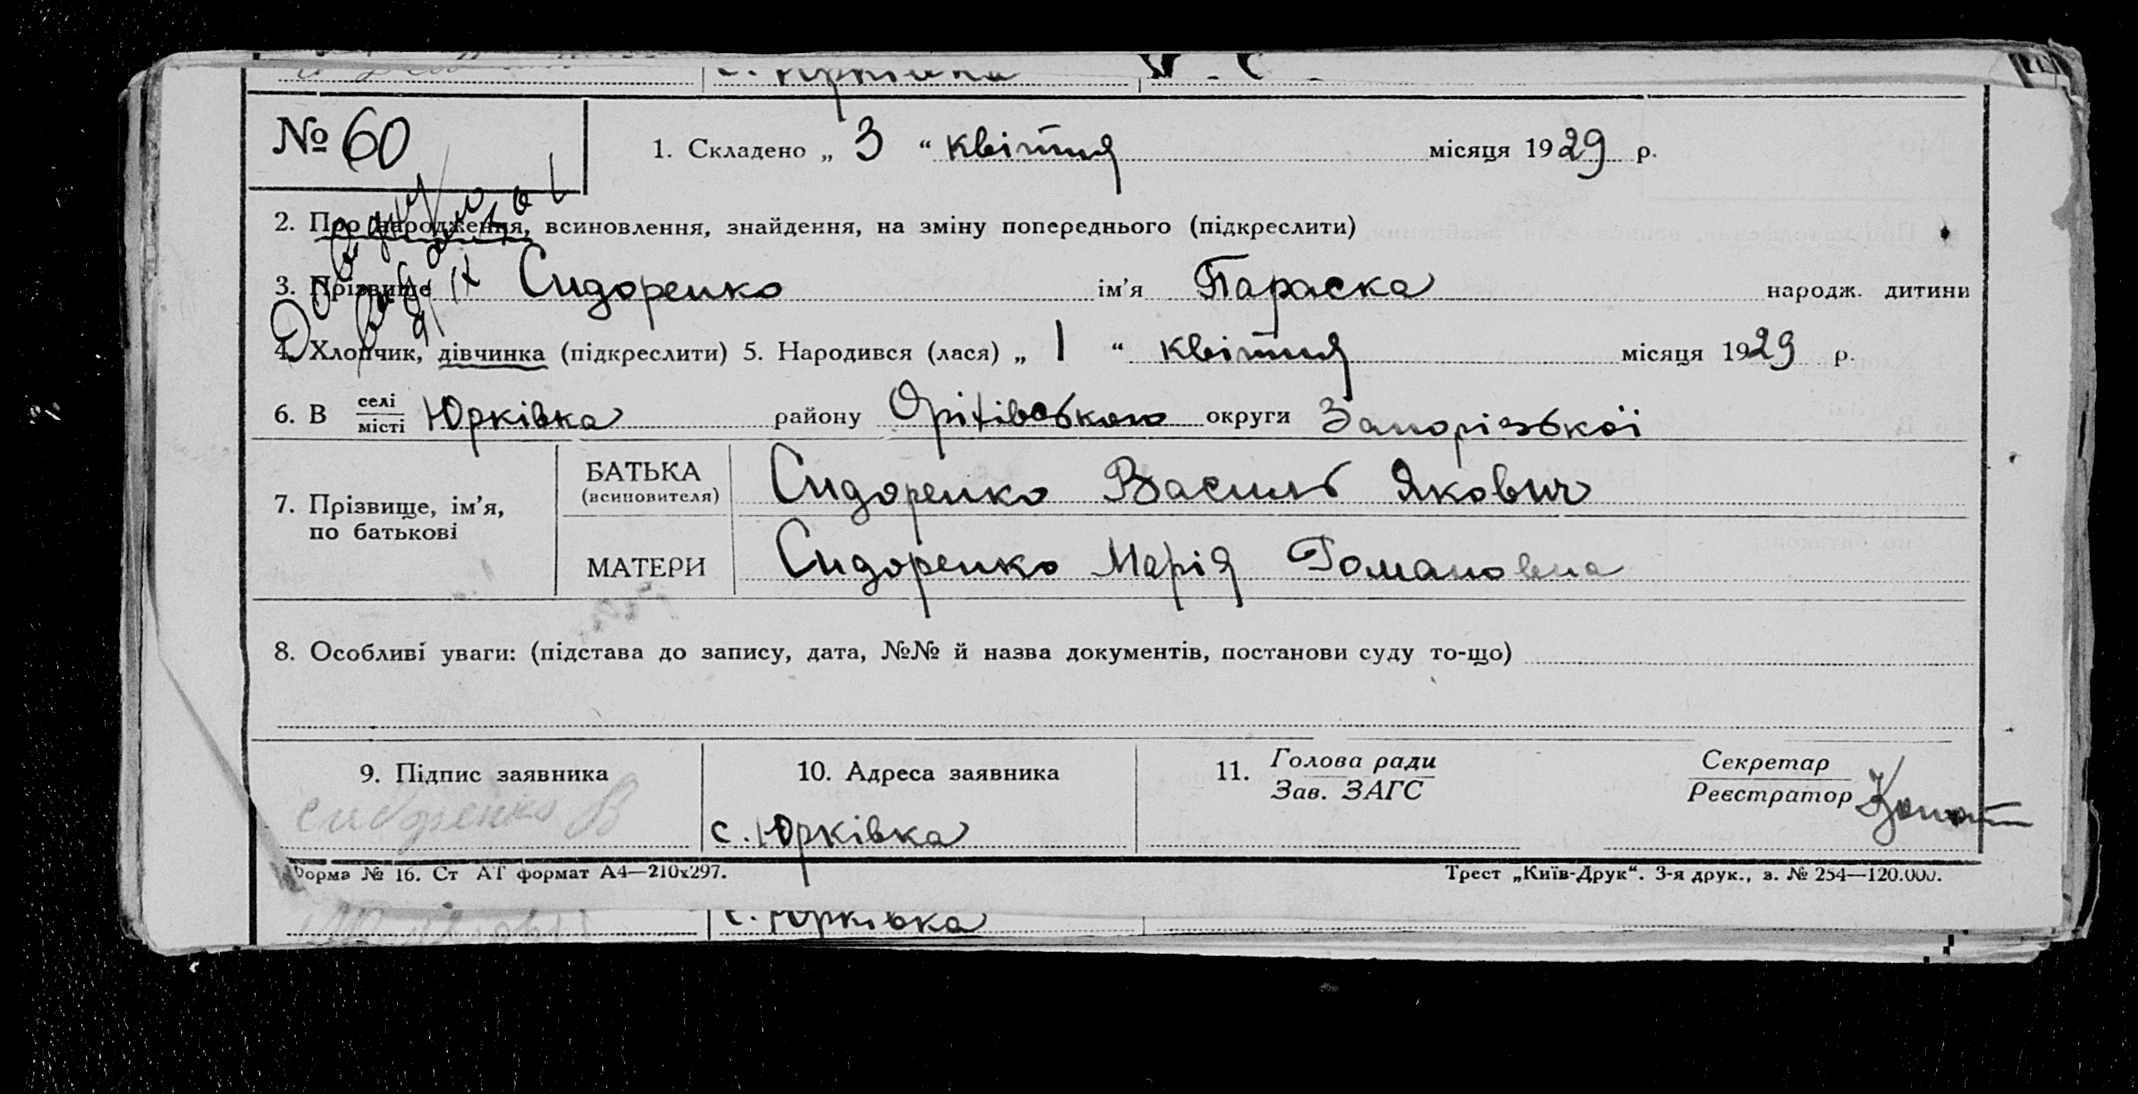 с. Юрківка
№ 60
1. Складено „ 3 “ квітня місяця 1929 р.
2. Про народження, всиновлення, знайдення, на зміну попереднього (підкреслити)
3. Прізвище Сидоренко ім’я Параска народж. дитини
4. Хлопчик, дівчинка (підкреслити) 5. Народився (лася) „ 1 “ квітня місяця 1929 р.
6. В селі
місті Юрківка району Оріхівського округи Запорізької
7. Прізвище, ім’я,
по батькові
БАТЬКА
(всиновителя)
Сидоренко Василь Якович
МАТЕРИ
Сидоренко Марія Романовна
8. Особливі уваги: (підстава до запису, дата, №№ й назва документів, постанови суду то-що)
9. Підпис заявника
Сидоренко В
10. Адреса заявника
с. Юрківка
11. Голова ради
Зав. ЗАГС
Секретар
Реєстратор
Форма № 16. Ст АТ формат А4—210х297.
Трест „Київ-Друк“. 3-я друк., з. № 254—120.000.
с. Юрківка